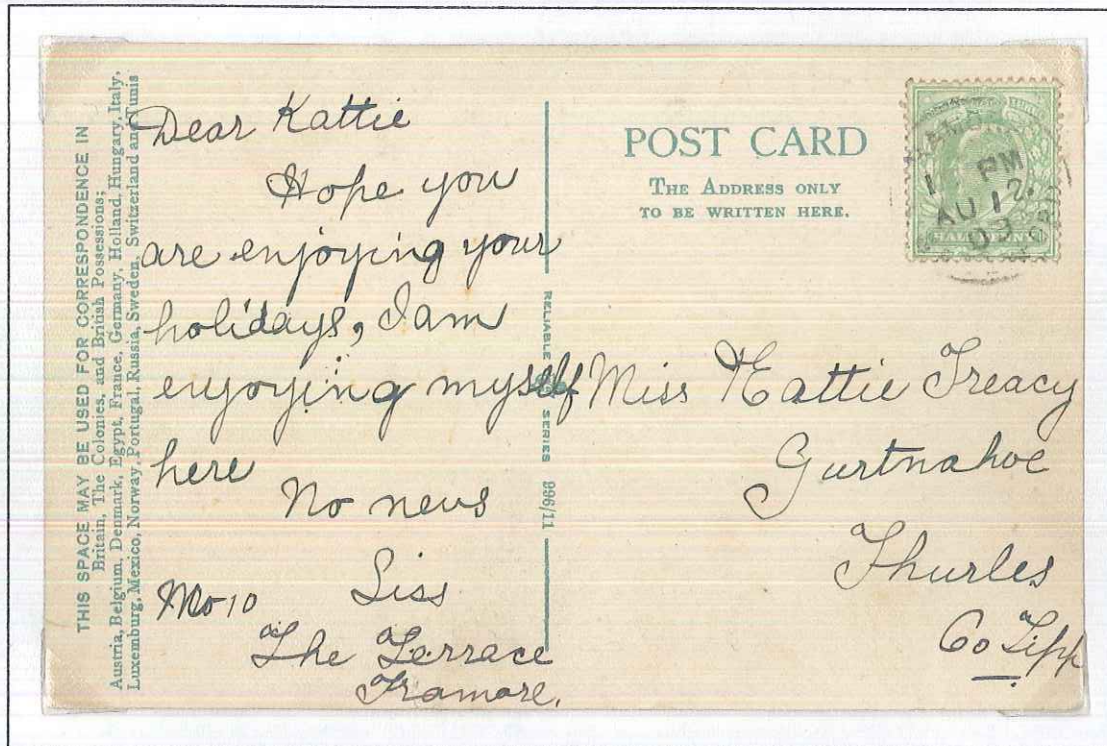 THIS SPACE MAY BE USED FOR CORRESPONDENCE IN
Britain, The Colonies, and British Possessions;
Austria, Belgium, Denmark, Egypt, France, Germany, Holland, Hungary, Italy,
Luxemburg, Mexico, Norway, Portugal, Russia, Sweden, Switzerland and Tunis
Dear Kattie
Hope you
are enjoying your
holidays, I am
enjoying myself
here
No news
Siss
No 10
The Terrace
Tramore.
RELIABLE SERIES 996/11
POST CARD
THE ADDRESS ONLY
TO BE WRITTEN HERE.
PM
AU 12
09
HALFPENNY
Miss Kattie Treacy
Gurtnahoe
Thurles
Co Tipp